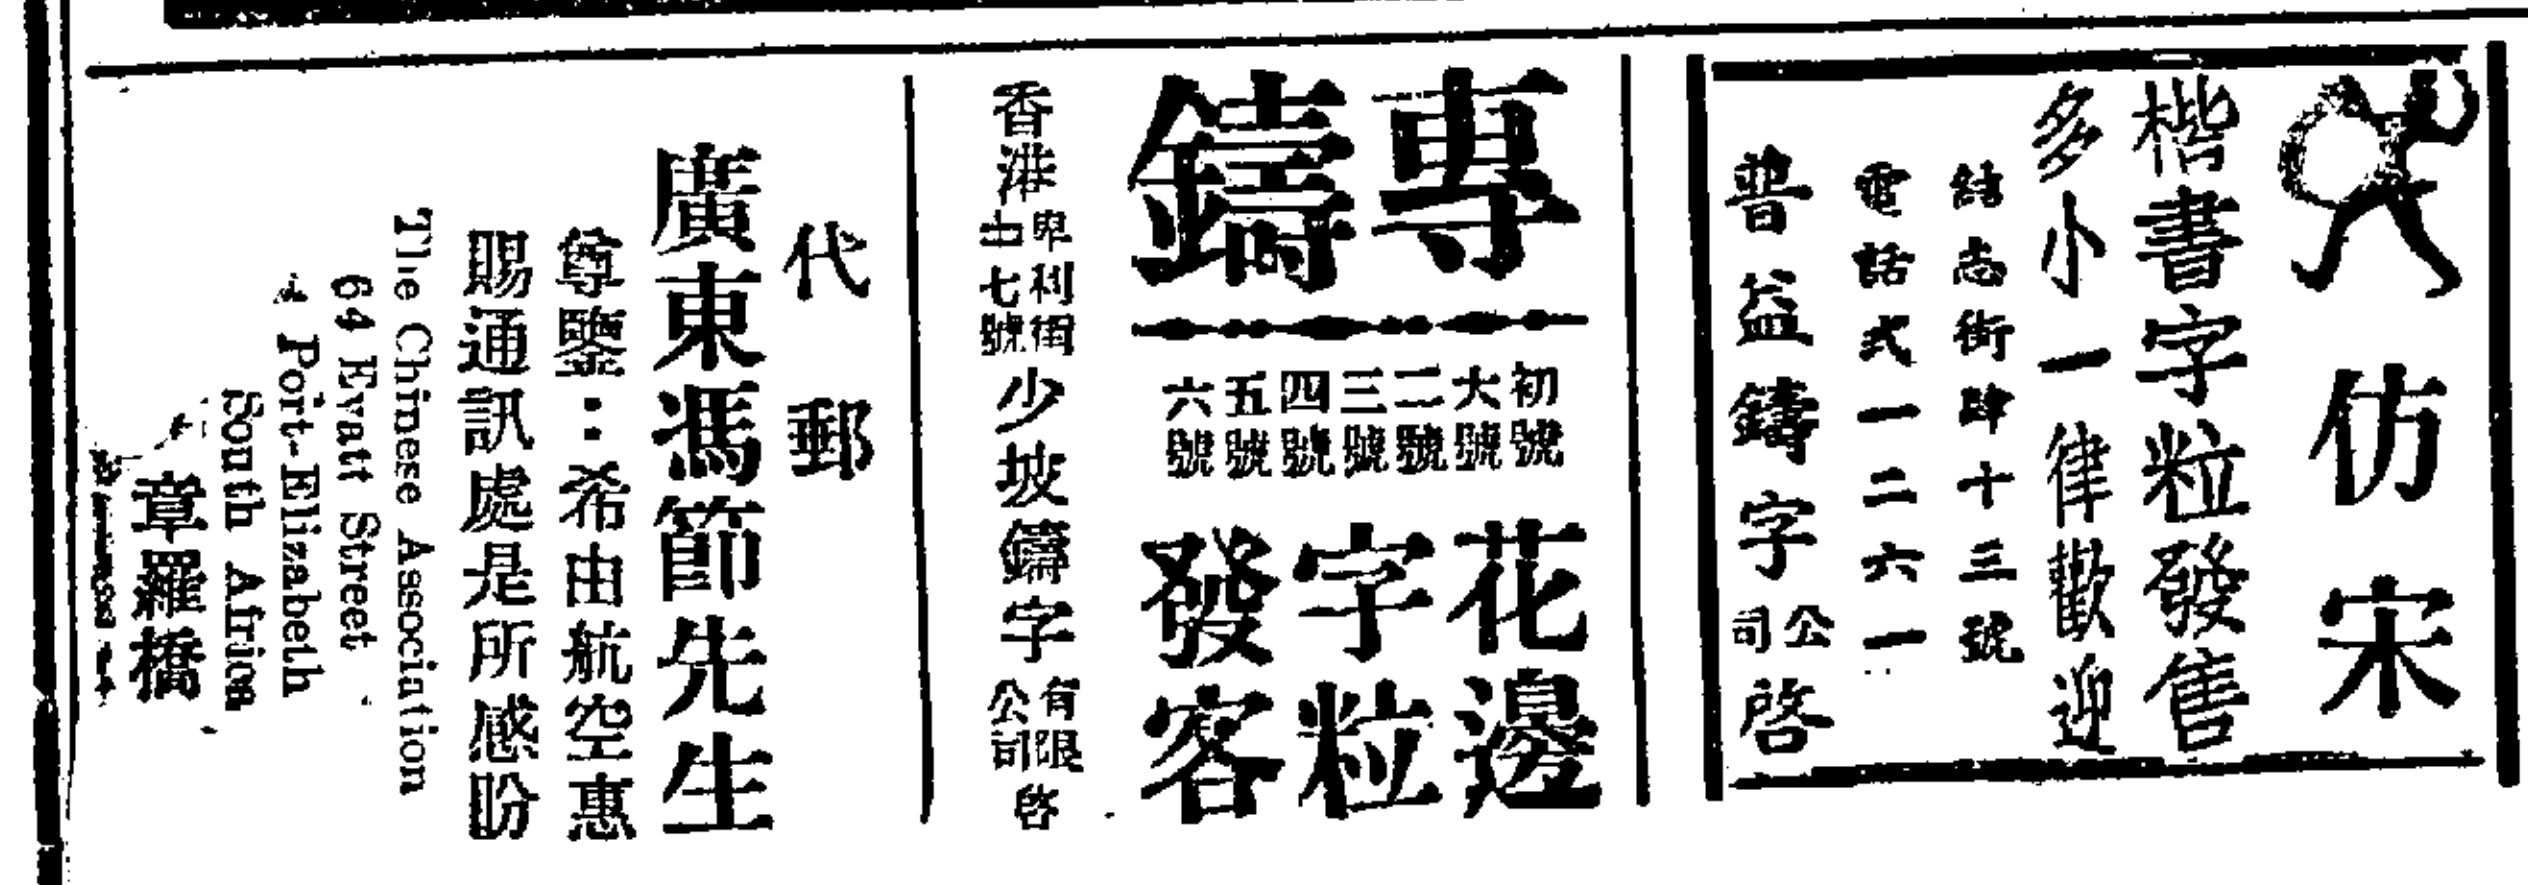 仿宋
楷書字粒發售
多小一律歡迎
結志街肆十三號
電話弍一二六一
普益鑄字公司啓
專鑄
初號
大號
二號
三號
四號
五號
六號
花邊
字粒
發客
香港卑利街廿七號少坡鑄字有限公司啓
代郵
廣東馮節先生
尊鑒：希由航空惠
賜通訊處是所感盼
The Chinese Association
64 Evatt Street
Port-Elizabeth
South Africa
章羅橋